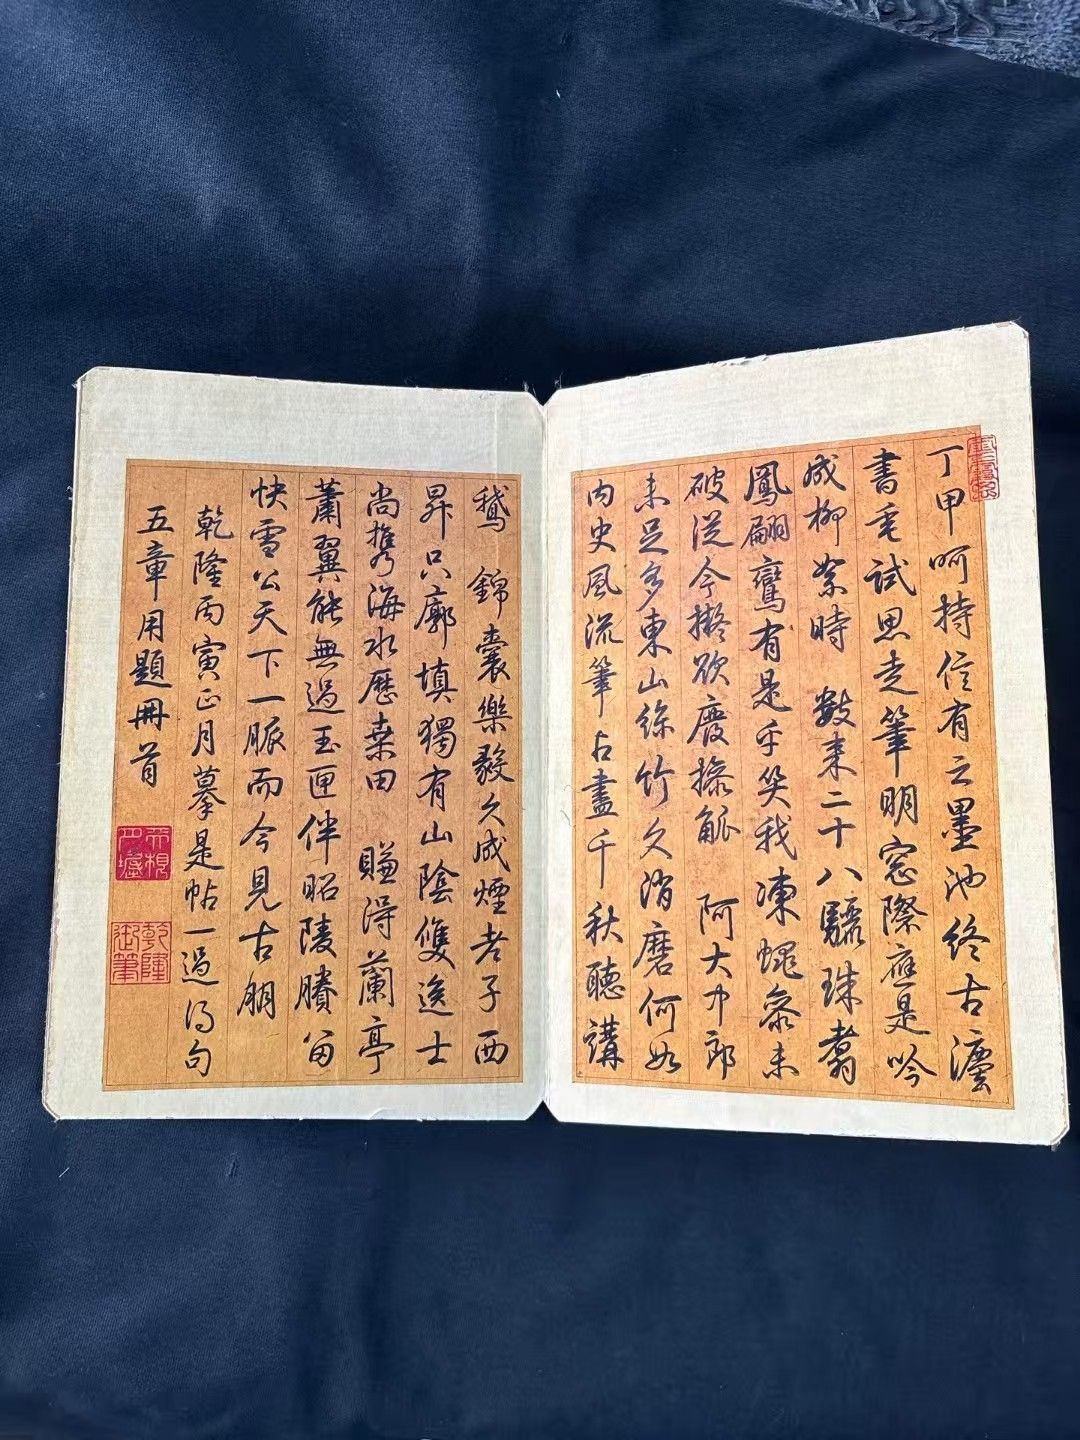 丁甲呵持信有之墨池終古灋
書垂試思走筆明窓際應是吟
成柳絮時 數來二十八驪珠翥
鳳翩鸞有是乎笑我凍蠅參未
破從今擬欲廢操觚 阿大中郎
未足多東山絲竹久消磨何如
內史風流筆占盡千秋聽講
鵝 錦囊樂毅久成煙老子西
昇只廓填獨有山陰雙逸士
尚攜海水歷桒田 賺得蘭亭
蕭翼能無過玉匣伴昭陵賸留
快雪公天下一脈而今見古朋
乾隆丙寅正月摹是帖一過得句
五章用題冊首
乾隆御筆